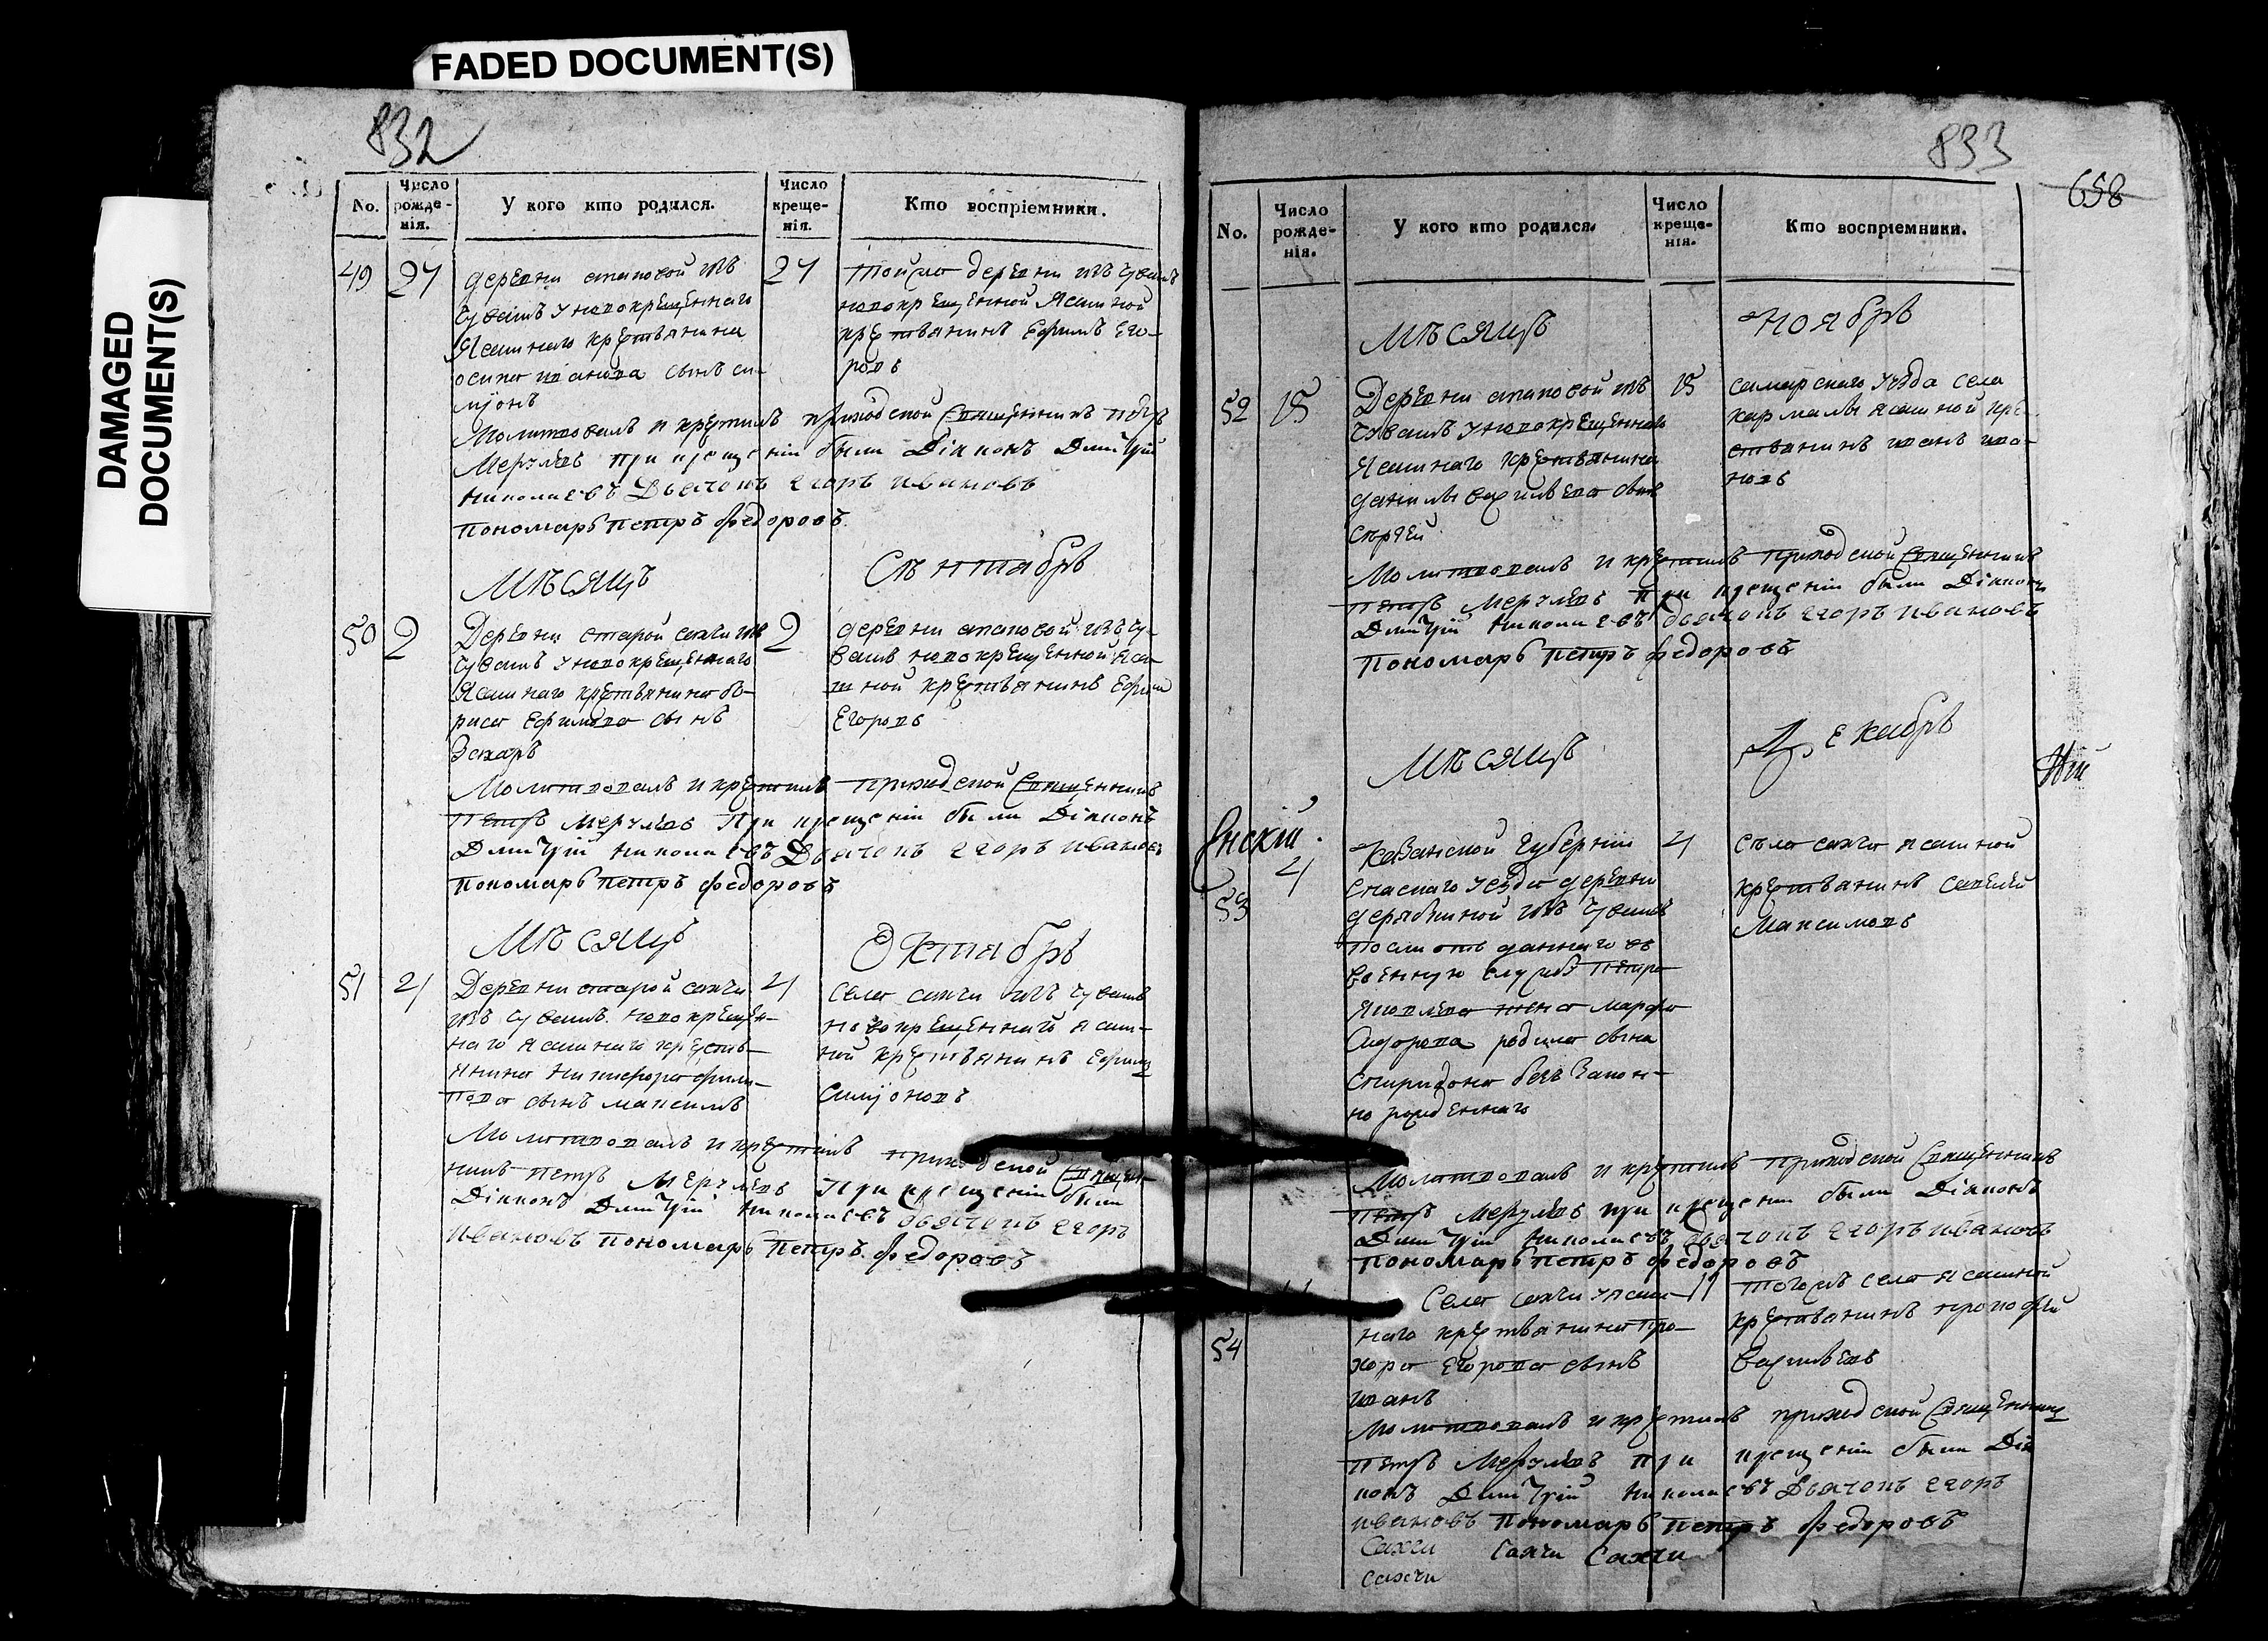 FADED DOCUMENT(S)
DAMAGED
DOCUMENT(S)
832
No.
Число
рожде-
нія.
У кого кто родился.
Число
креще-
нія.
Кто воспріемники.
49
27
деревни атаповой изъ
чувашъ у новокрещеннаго
Ясашнаго крестьянина
осипа иванова сынъ си-
мѵонъ
27
тойжа деревни изъ чувашъ
новокрещенной Ясашной
крестьянинъ Ефимъ Его-
ровъ
Молитвовалъ и крестилъ приходской Священникъ петръ
при крещеніи были Діаконъ Дмитрій
николаевъ Дьячокъ егоръ ивановъ
пономарь петръ федоровъ
Мѣсяцъ
Сѣнтябрь
50
2
Деревни старой сахчи изъ
чувашъ у новокрещеннаго
Ясашнаго крестьянина бо-
риса Ефимова сынъ
Захаръ
2
деревни атаповой изъ чу-
вашъ новокрещенной Яса-
шной крестьянинъ Ефимъ
Егоровъ
Молитвовалъ и крестилъ приходской Священникъ
петръ При крещеніи были Діаконъ
Дмитрій николаевъ Дьячокъ егоръ ивановъ
пономарь петръ федоровъ
Мѣсяцъ
Октябрь
51
21
Деревни старой сахчи
изъ чувашъ новокрещен-
наго ясашнаго кресть-
янина никифора фили-
пова сынъ максимъ
21
села сахчи изъ чувашъ
новокрещеннаго ясаш-
ной крестьянинъ Ефимъ
Симѵоновъ
Молитвовалъ и крестилъ приходской Священ-
никъ петръ При крещеніи были
Діаконъ Дмитрій николаевъ дьячокъ егоръ
ивановъ пономарь петръ федоровъ
833
658
No.
Число
рожде-
нія.
У кого кто родился.
Число
креще-
нія.
Кто воспріемники.
Мѣсяцъ
Ноябрь
52
15
Деревни атаповой изъ
чувашъ у новокрещеннаго
Ясашнаго крестьянина
данилы васильева сынъ
сергѣй
15
самарскаго уезда села
кармалы ясашной кре-
стьянинъ иванъ ива-
новъ
Молитвовалъ и крестилъ приходской Священникъ
петръ При крещеніи были Діаконъ
Дмитрій николаевъ дьячокъ егоръ ивановъ
пономарь петръ федоровъ
Мѣсяцъ
Декабрь
53
21
Казанской губерніи
спаскаго уезда деревни
изъ чувашъ
посли отъ даннаго въ
военную службу петра
яковлева жена марфа
сидорова родила сына
спиридона безъ закон-
но рожденнаго
21
села сахчи ясашной
крестьянинъ савелей
Максимовъ
Молитвовалъ и крестилъ приходской Священникъ
петръ при крещеніи были Діаконъ
Дмитрій николаевъ дьячокъ егоръ ивановъ
пономарь петръ федоровъ
54
Села сахчи у ясаш-
наго крестьянина про-
хора егорова сынъ
иванъ
11
тогожъ села ясашной
крестьянинъ прокофей
васильевъ
Молитвовалъ и крестилъ приходской Священникъ
петръ при крещеніи были Діа
конъ Дмитрій николаевъ Дьячокъ егоръ
ивановъ пономарь петръ федоровъ
Сахчи Сахчи Сахчи
сахчи